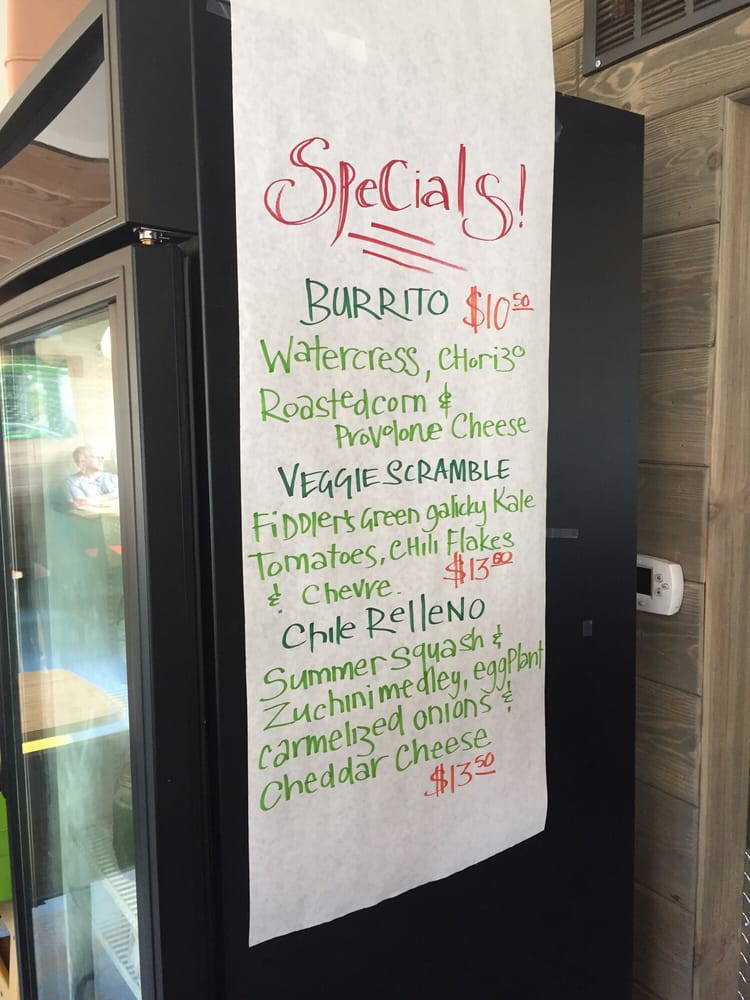 Specials!
BURRITO $10.50
Watercress, CHorizo
Roasted corn &
Provolone Cheese
VEGGIE SCRAMBLE
FiDDler's Green galicky Kale
Tomatoes, CHili Flakes
& Chevre. $13.00
Chile Relleno
Summer Squash &
Zuchini medley, eggplant
carmelized onions &
Cheddar Cheese
$13.50